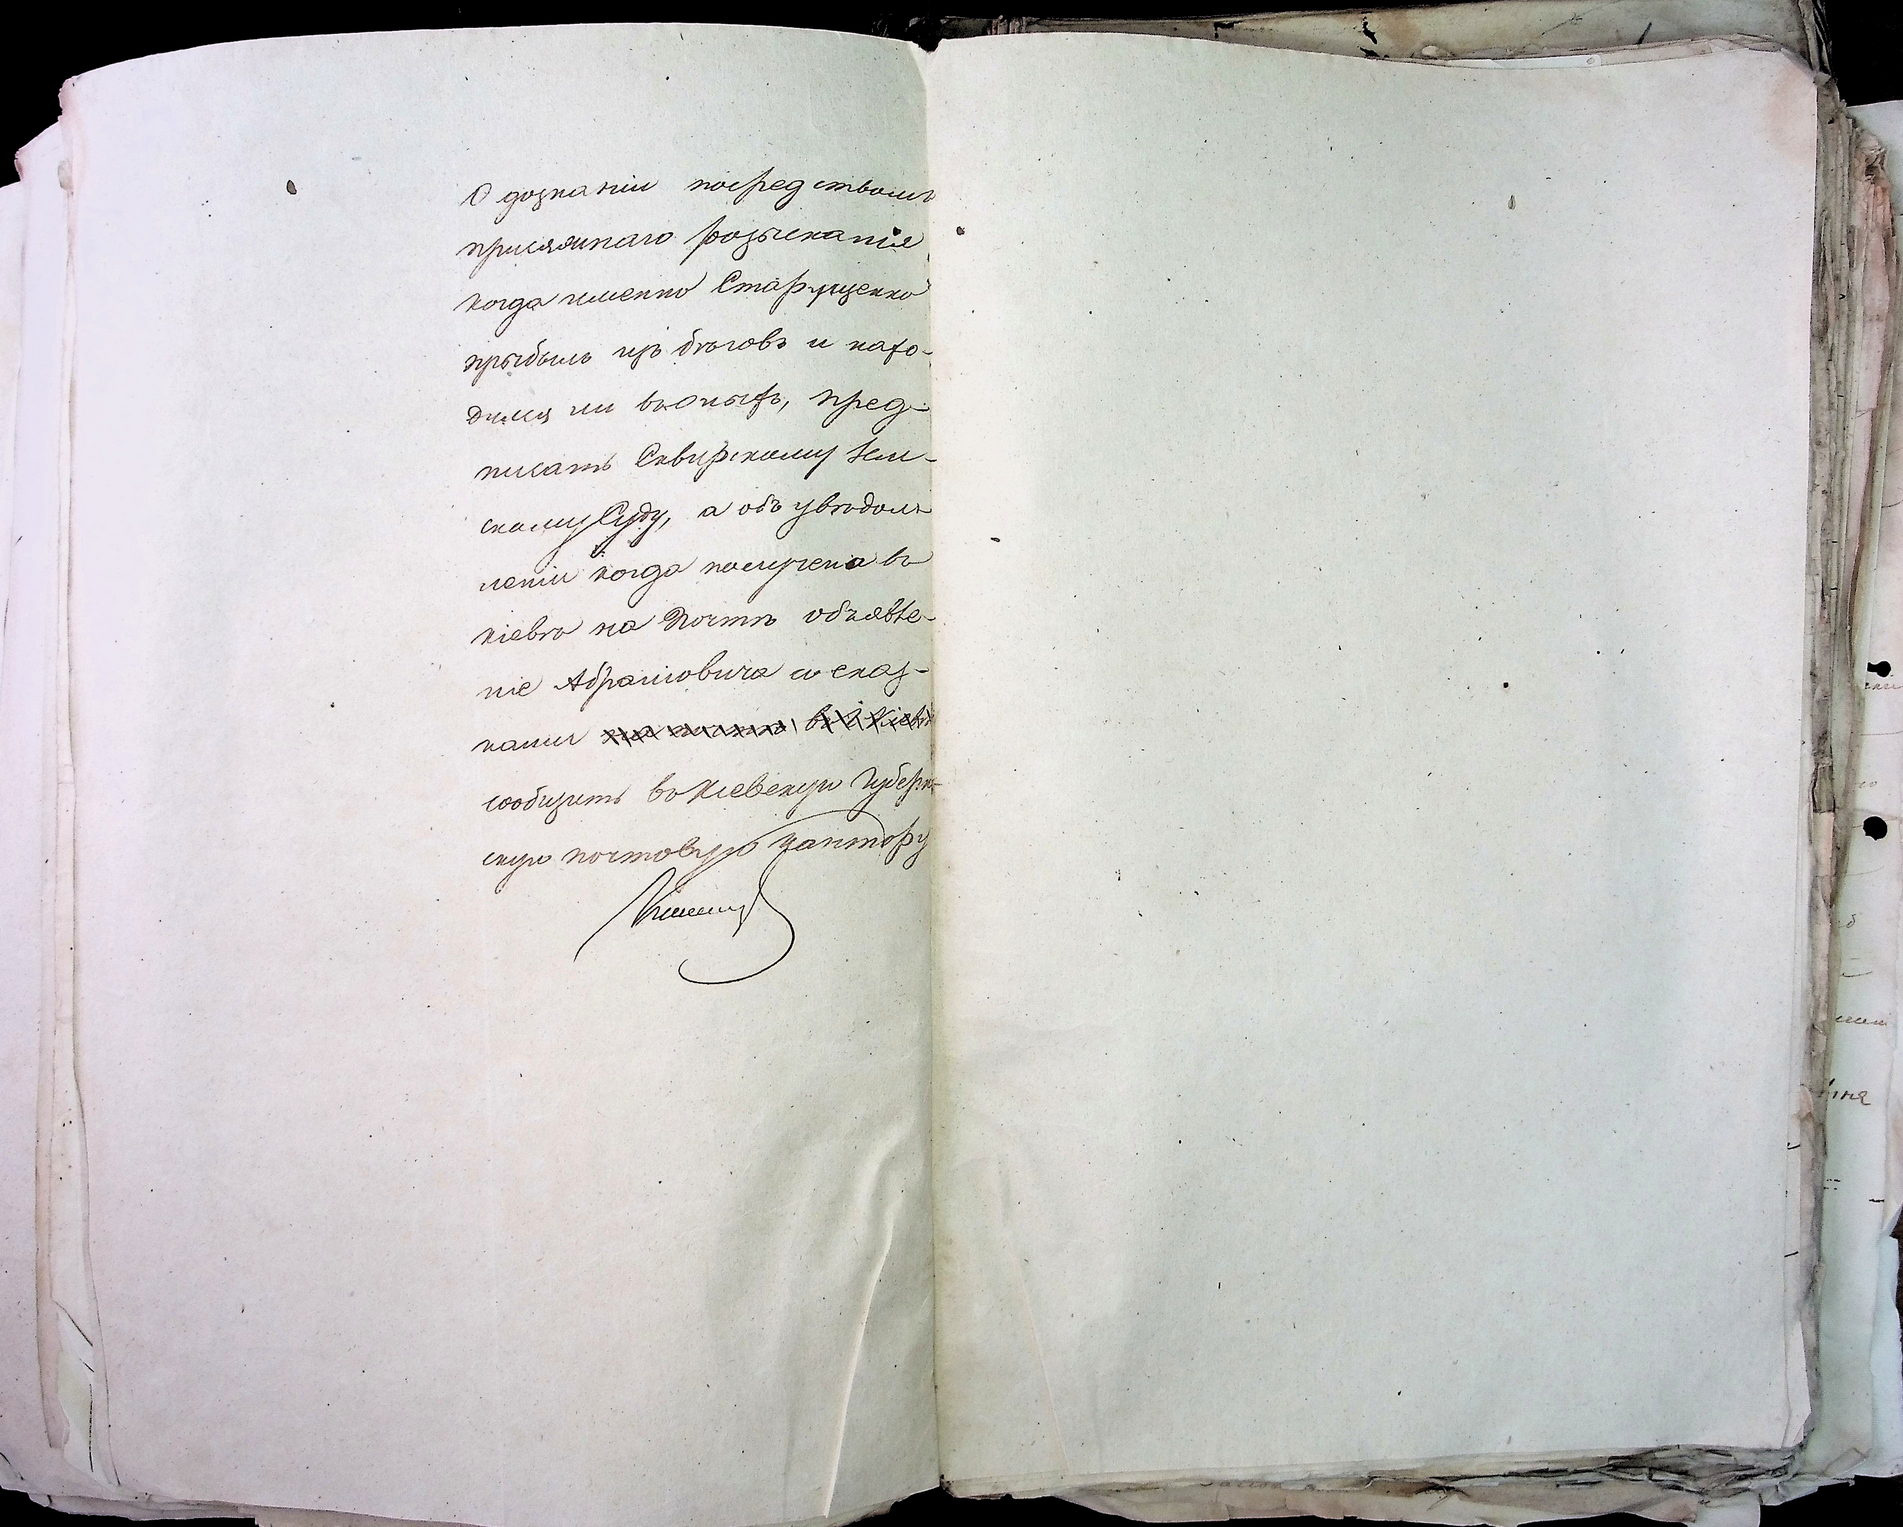 О дознаніи посредствомъ
присяжнаго розысканія
когда именно Старущенко
прыбылъ изъ бѣговъ и нахо-
дился ли въ оныхъ, пред-
писать Сквирскому Зем-
скому Суду, а объ увѣдом-
леніи когда получена въ
Кіевѣ на Почтѣ объявле-
ніе Абрамовича со сказ-
ками на почтѣ въ г. Кіевѣ
сообщить въ Кіевскую Губерн-
скую почтовую кантору